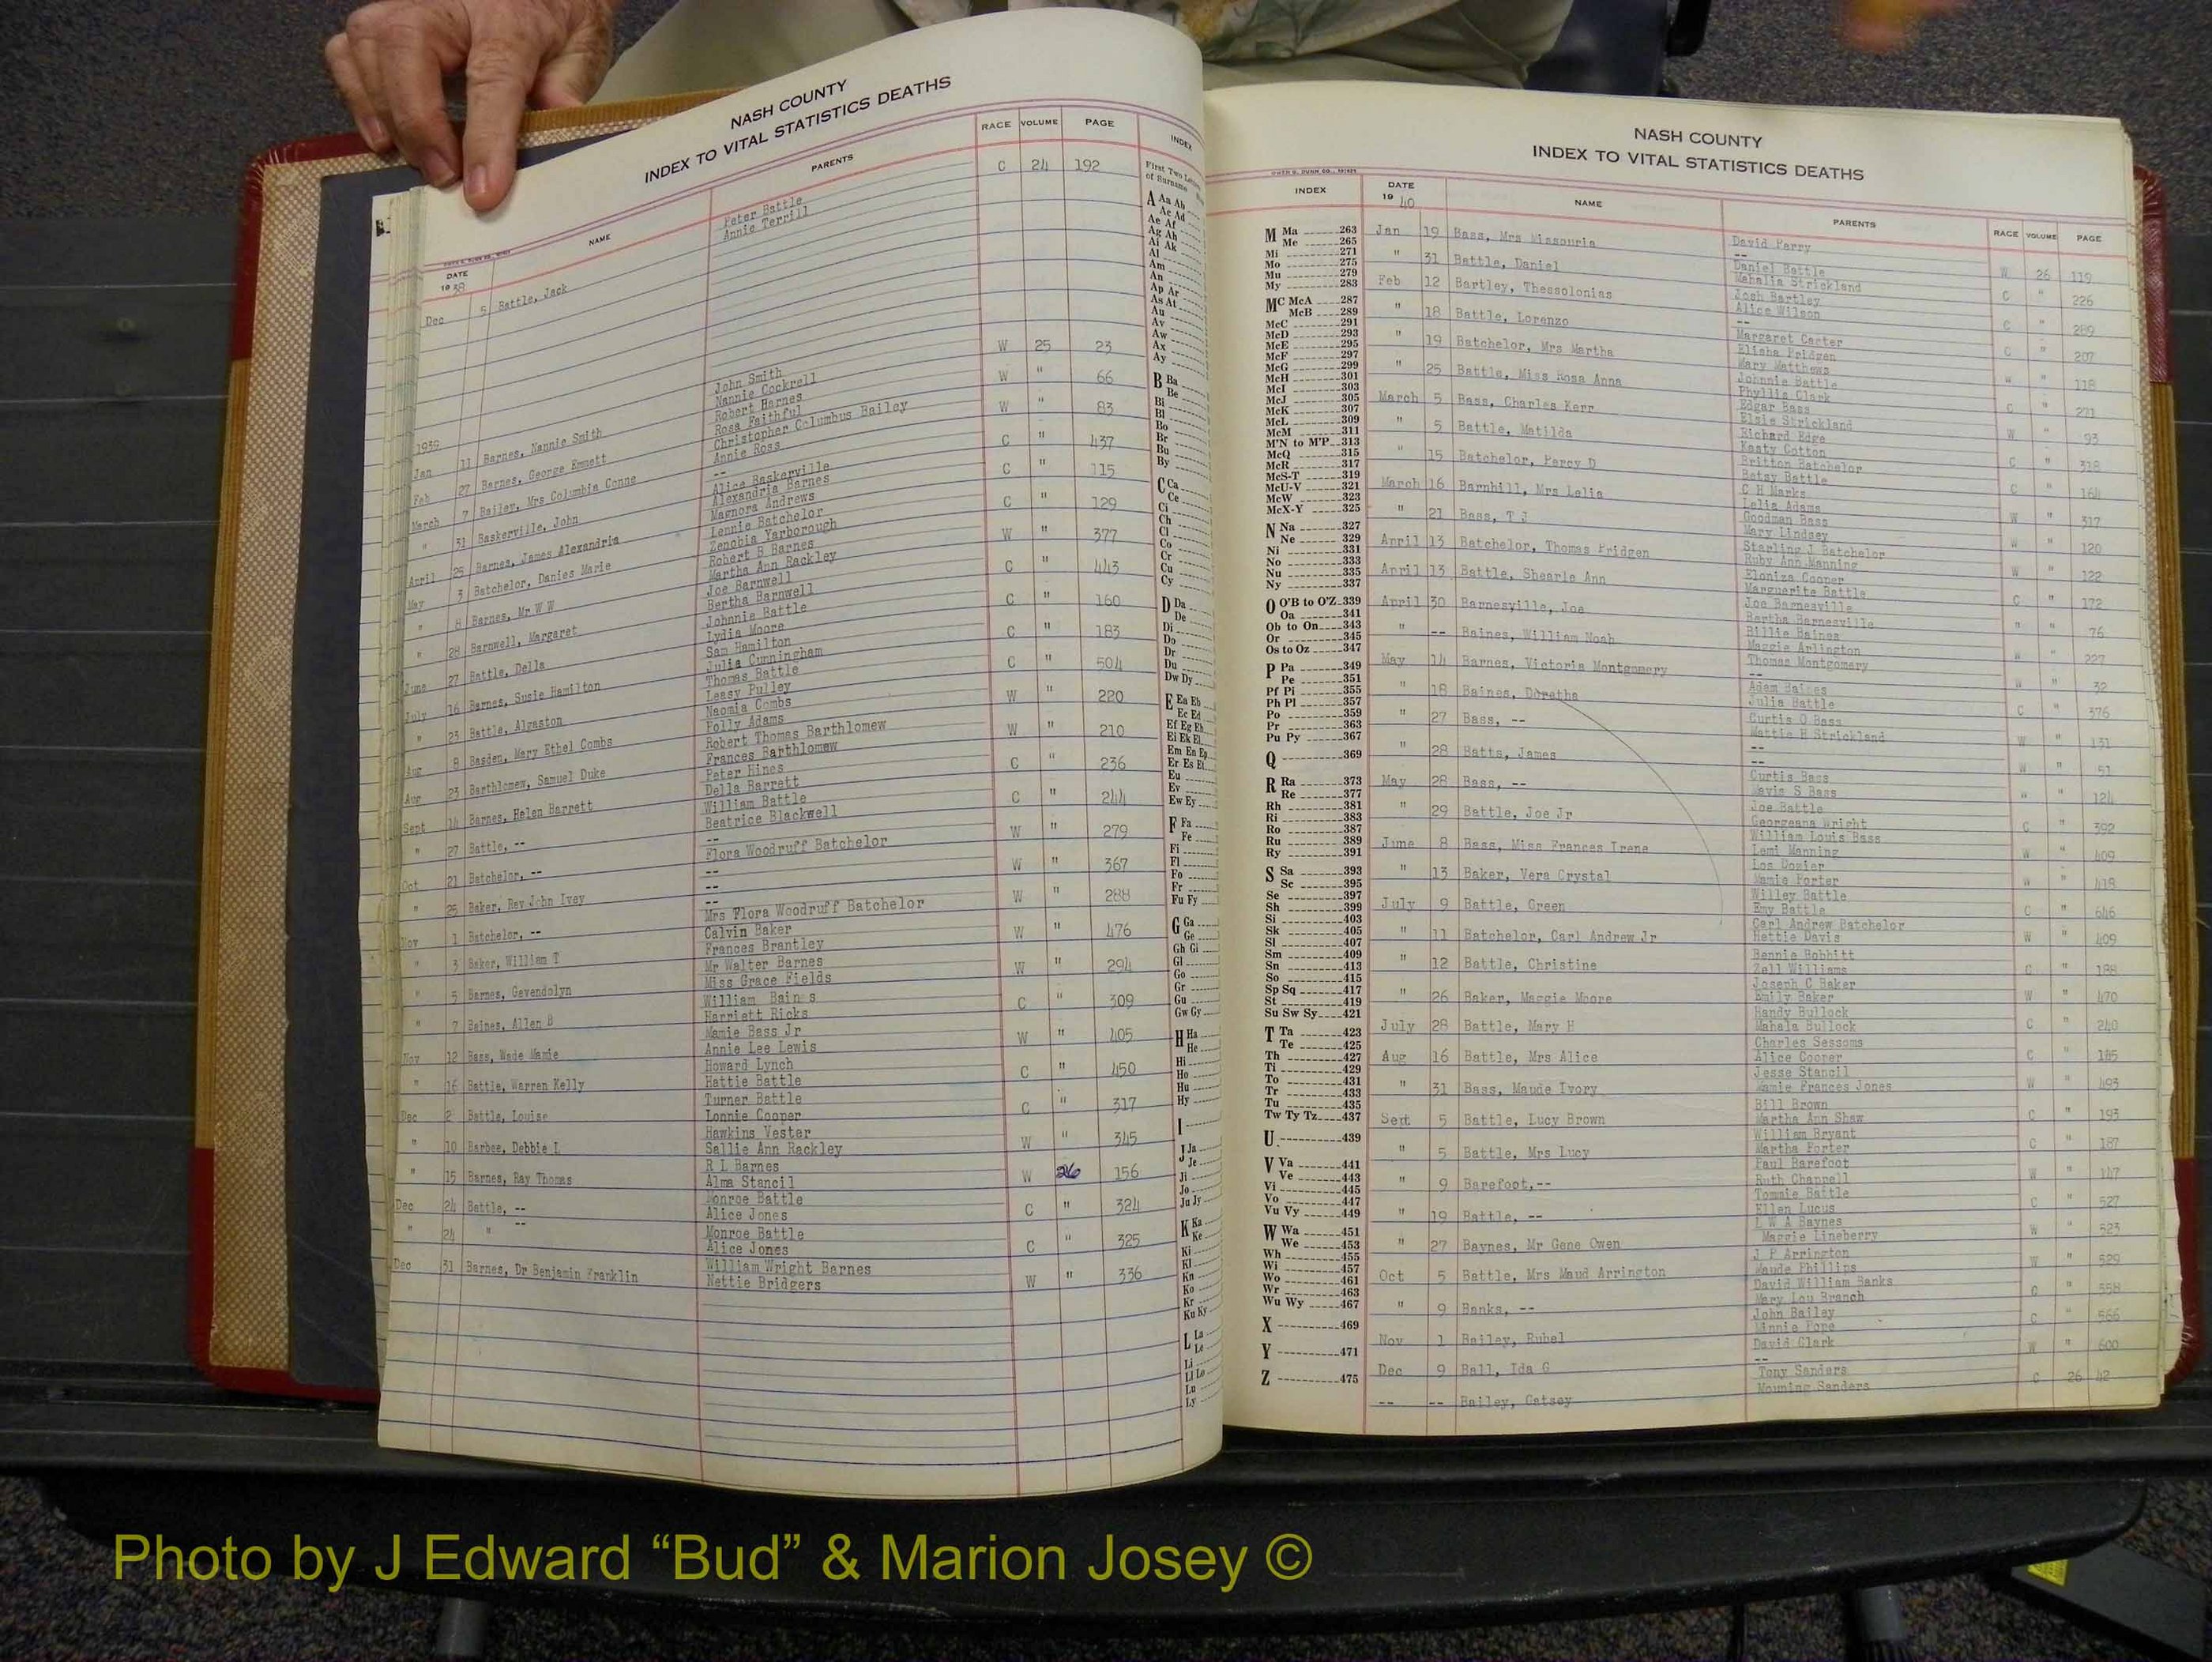 NASH COUNTY
INDEX TO VITAL STATISTICS DEATHS
DATE
19 38
NAME
PARENTS
RACE
VOLUME
PAGE
INDEX
Dec 5 Battle, Jack Peter Battle C 24 192
Annie Terrill
1939
Jan 11 Barnes, Nannie Smith John Smith W 25 23
Nannie Cockrell
Feb 27 Barnes, George Emmett Robert Barnes W " 66
Rosa Faithful
March 7 Bailey, Mrs Columbia Conne Christopher Columbus Bailey W " 83
Annie Ross
" 31 Baskerville, John -- C " 437
Alice Baskerville
April 25 Barnes, James Alexandria Alexandria Barnes C " 115
Magnora Andrews
May 3 Batchelor, Danies Marie Lennie Batchelor C " 129
Zenobia Yarborough
" 8 Barnes, Mr W W Robert B Barnes W " 377
Martha Ann Rackley
" 28 Barnwell, Margaret Joe Barnwell C " 443
Bertha Barnwell
June 27 Battle, Della Johnnie Battle C " 160
Lydia Moore
July 16 Barnes, Susie Hamilton Sam Hamilton C " 183
Julia Cunningham
" 23 Battle, Algaston Thomas Battle C " 504
Leasy Pulley
Aug 8 Basden, Mary Ethel Combs Naomia Combs W " 220
Polly Adams
Aug 23 Barthlomew, Samuel Duke Robert Thomas Barthlomew W " 210
Frances Barthlomew
Sept 14 Barnes, Helen Barrett Peter Hines C " 236
Della Barrett
" 27 Battle, -- William Battle C " 244
Beatrice Blackwell
Oct 21 Batchelor, -- -- W " 279
Flora Woodruff Batchelor
" 25 Baker, Rev John Ivey -- W " 367
--
Nov 1 Batchelor, -- -- W " 288
Mrs Flora Woodruff Batchelor
" 3 Baker, William T Calvin Baker W " 476
Frances Brantley
" 5 Barnes, Gevendolyn Mr Walter Barnes W " 294
Miss Grace Fields
" 7 Baines, Allen B William Baines C " 309
Harriett Ricks
Nov 12 Bass, Wade Mamie Mamie Bass Jr W " 405
Annie Lee Lewis
" 16 Battle, Warren Kelly Howard Lynch C " 450
Hattie Battle
Dec 2 Battle, Louise Turner Battle C " 317
Lonnie Cooper
" 10 Barbee, Debbie L Hawkins Vester W " 345
Sallie Ann Rackley
" 15 Barnes, Ray Thomas R L Barnes W 26 156
Alma Stancil
Dec 24 Battle, -- Monroe Battle C " 324
Alice Jones
" 24 " -- Monroe Battle C " 325
Alice Jones
Dec 31 Barnes, Dr Benjamin Franklin William Wright Barnes W " 336
Nettie Bridgers
First Two Letters
of Surname
A Aa Ab
Ac Ad
Ae Af
Ag Ah
Ai Ak
Al
Am
An
Ap Ar
As At
Au
Av
Aw
Ax
Ay
B Ba
Be
Bi
Bl
Bo
Br
Bu
By
C Ca
Ce
Ci
Ch
Cl
Co
Cr
Cu
Cy
D Da
De
Di
Do
Dr
Du
Dw Dy
E Ea Eb
Ec Ed
Ef Eg Eh
Ei Ek El
Em En Ep
Er Es Et
Eu
Ev
Ew Ey
F Fa
Fe
Fi
Fl
Fo
Fr
Fu Fy
G Ga
Ge
Gh Gi
Gl
Go
Gr
Gu
Gw Gy
H Ha
He
Hi
Ho
Hu
Hy
I
J Ja
Je
Ji
Jo
Ju Jy
K Ka
Ke
Ki
Kl
Kn
Ko
Kr
Ku Ky
L La
Le
Li
Ll Lo
Lu
Ly
NASH COUNTY
INDEX TO VITAL STATISTICS DEATHS
INDEX
DATE
19 40
NAME
PARENTS
RACE
VOLUME
PAGE
M Ma 263
Me 265
Mi 271
Mo 275
Mu 279
My 283
Mc McA 287
McB 289
McC 291
McD 293
McE 295
McF 297
McG 299
McH 301
McI 303
McJ 305
McK 307
McL 309
McM 311
M'N to M'P 313
McQ 315
McR 317
McS-T 319
McU-V 321
McW 323
McX-Y 325
N Na 327
Ne 329
Ni 331
No 333
Nu 335
Ny 337
O O'B to O'Z 339
Oa 341
Ob to On 343
Or 345
Os to Oz 347
P Pa 349
Pe 351
Pf Pi 355
Ph Pl 357
Po 359
Pr 363
Pu Py 367
Q 369
R Ra 373
Re 377
Rh 381
Ri 383
Ro 387
Ru 389
Ry 391
S Sa 393
Sc 395
Se 397
Sh 399
Si 403
Sk 405
Sl 407
Sm 409
Sn 413
So 415
Sp Sq 417
St 419
Su Sw Sy 421
T Ta 423
Te 425
Th 427
Ti 429
To 431
Tr 433
Tu 435
Tw Ty Tz 437
U 439
V Va 441
Ve 443
Vi 445
Vo 447
Vu Vy 449
W Wa 451
We 453
Wh 455
Wi 457
Wo 461
Wr 463
Wu Wy 467
X 469
Y 471
Z 475
Jan 19 Bass, Mrs Missouria David Parry W 26 119
--
" 31 Battle, Daniel Daniel Battle C " 226
Mahalia Strickland
Feb 12 Bartley, Thessolonias Josh Bartley C " 289
Alice Wilson
" 18 Battle, Lorenzo -- C " 207
Margaret Carter
" 19 Batchelor, Mrs Martha Elisha Pridgen W " 118
Mary Matthews
" 25 Battle, Miss Rosa Anna Johnnie Battle C " 271
Phyllis Clark
March 5 Bass, Charles Kerr Edgar Bass W " 93
Elsie Strickland
" 5 Battle, Matilda Richard Edge C " 318
Kasty Cotton
" 15 Batchelor, Percy D Britton Batchelor C " 164
Betsy Battle
March 16 Barnhill, Mrs Lelia C H Marks W " 317
Lelia Adams
" 21 Bass, T J Goodman Bass W " 120
Mary Lindsey
April 13 Batchelor, Thomas Pridgen Sterling J Batchelor W " 122
Ruby Ann Manning
April 13 Battle, Shearle Ann Eloniza Cooper C " 172
Marguerite Battle
April 30 Barnesville, Joe Joe Barnesville " " 76
Bertha Barnesville
" -- Baines, William Noah Billie Baines W " 227
Maggie Arlington
May 14 Barnes, Victoria Montgomery Thomas Montgomery W " 32
--
" 18 Baines, Doretha Adam Baines C " 376
Julia Battle
" 27 Bass, -- Curtis O Bass W " 131
Mattie H Strickland
" 28 Batts, James -- W " 51
--
May 28 Bass, -- Curtis Bass " " 124
Mavis S Bass
" 29 Battle, Joe Jr Joe Battle C " 392
Georgeana Wright
June 8 Bass, Miss Frances Irene William Louis Bass W " 409
Lemi Manning
" 13 Baker, Vera Crystal Los Dozier W " 418
Mamie Porter
July 9 Battle, Green Willey Battle C " 646
Emy Battle
" 11 Batchelor, Carl Andrew Jr Carl Andrew Batchelor W " 409
Hettie Davis
" 12 Battle, Christine Bennie Bobbitt C " 188
Zell Williams
" 26 Baker, Maggie Moore Joseph C Baker W " 470
Emily Baker
July 28 Battle, Mary H Randy Bullock C " 240
Mahala Bullock
Aug 16 Battle, Mrs Alice Charles Sessoms C " 185
Alice Cooper
" 31 Bass, Maude Ivory Jesse Stancil W " 493
Mamie Frances Jones
Sept 5 Battle, Lucy Brown Bill Brown C " 193
Martha Ann Shaw
" 5 Battle, Mrs Lucy William Bryant C " 187
Martha Porter
" 9 Barefoot,-- Paul Barefoot W " 147
Ruth Chappell
" 19 Battle, -- Tommie Battle C " 527
Ellen Lucus
" 27 Baynes, Mr Gene Owen L W A Baynes W " 523
Maggie Lineberry
Oct 5 Battle, Mrs Maud Arrington J P Arrington W " 529
Maude Phillips
" 9 Banks, -- David William Banks C " 558
Mary Lou Branch
Nov 1 Bailey, Rubel John Bailey C " 566
Minnie Pope
Dec 9 Ball, Ida G David Clark W " 600
--
-- -- Bailey, Catsey Tony Sanders C 26 42
Mouning Sanders
Photo by J Edward “Bud” & Marion Josey ©